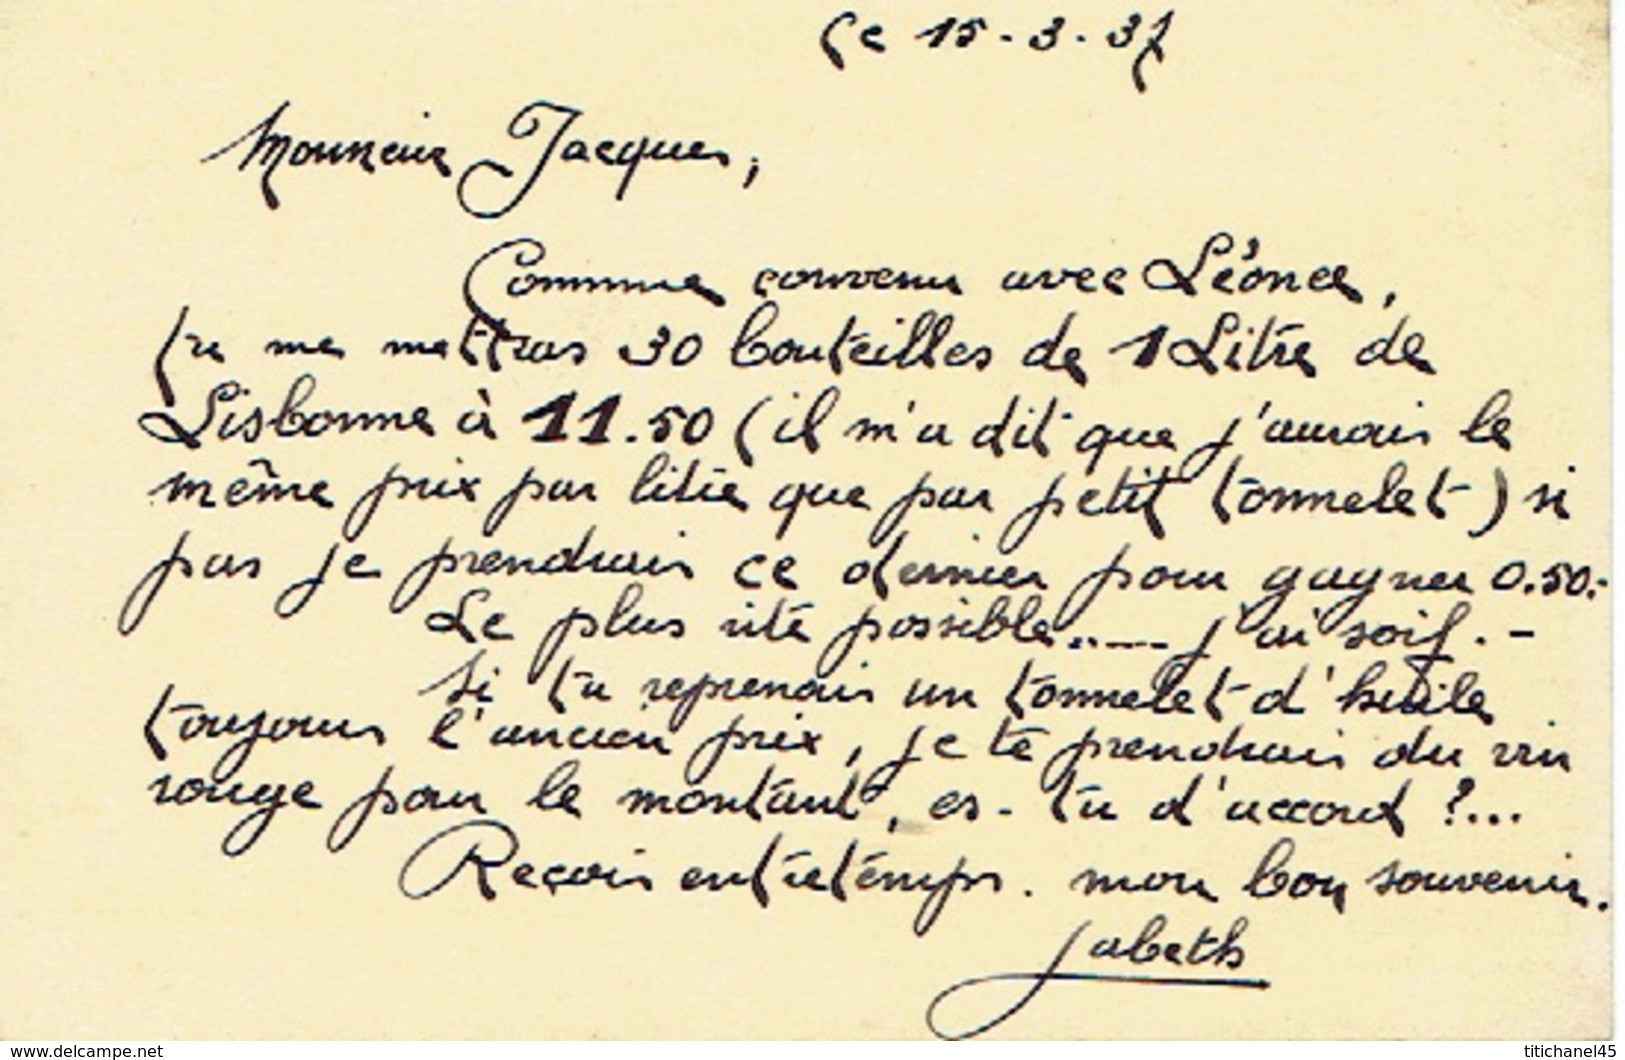 Ce 15-3-37
Monsieur Jacques,
Comme convenu avec Léonce,
tu me mettras 30 bouteilles de 1 Litre de
Lisbonne à 11.50 (il m'a dit que j'aurais le
même prix par litre que par petit tonnelet) si
pas je prendrais ce dernier pour gagner 0.50.-
Le plus vite possible..___ j'ai soif.-
Si tu reprenais un tonnelet d'huile
toujours l'ancien prix, je te prendrais du vin
rouge pour le montant, es-tu d'accord ?...
Reçois entretemps. mon bon souvenir.
Jabeth
www.delcampe.net
titichanel45